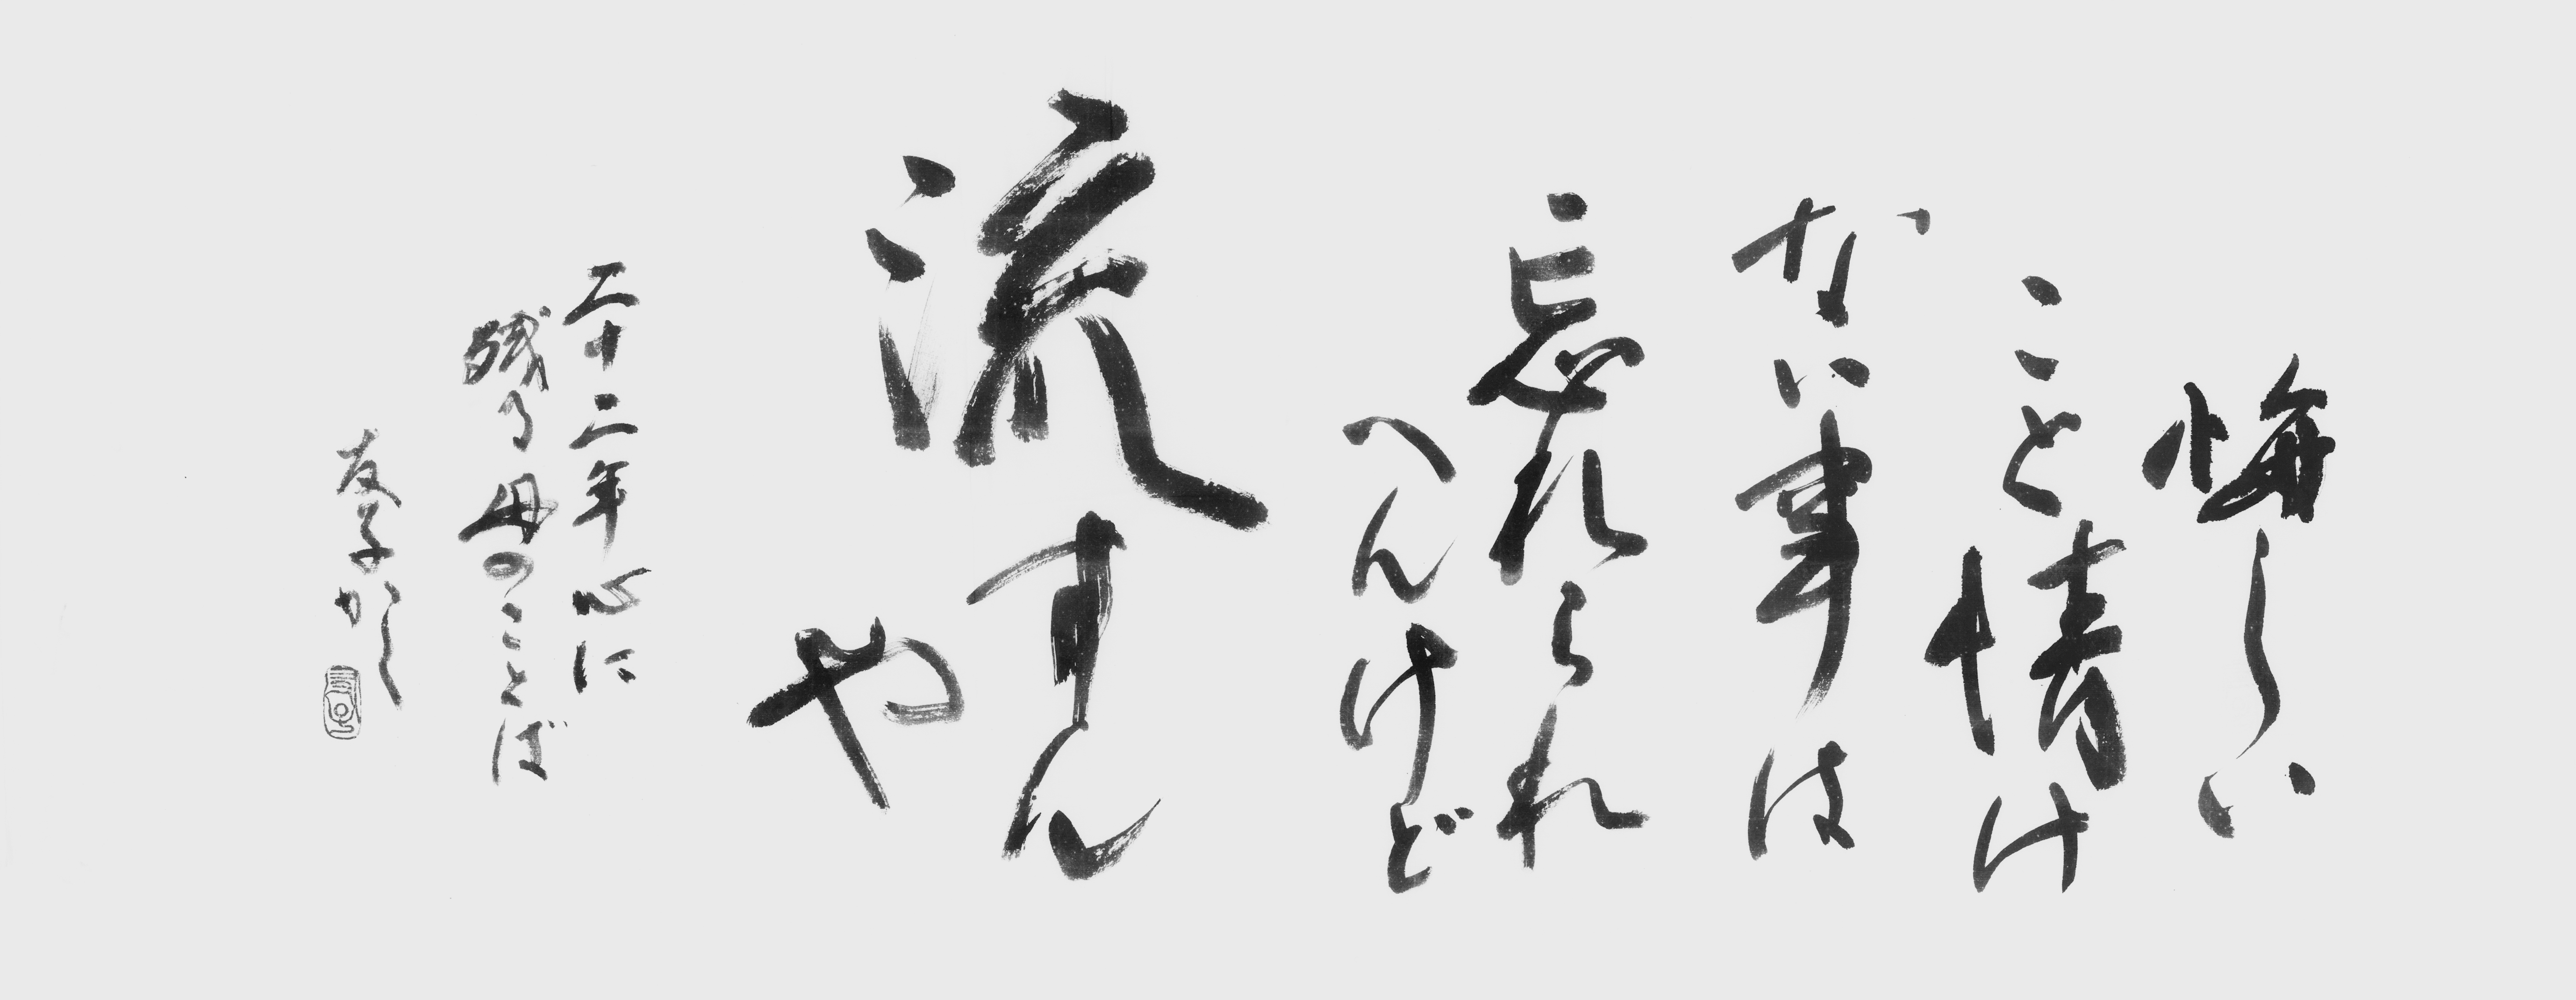 悔しい
こと情け
ない事は
忘れられ
へんけど
流すん
や
二十二年心に
残る母のことば
友子かく